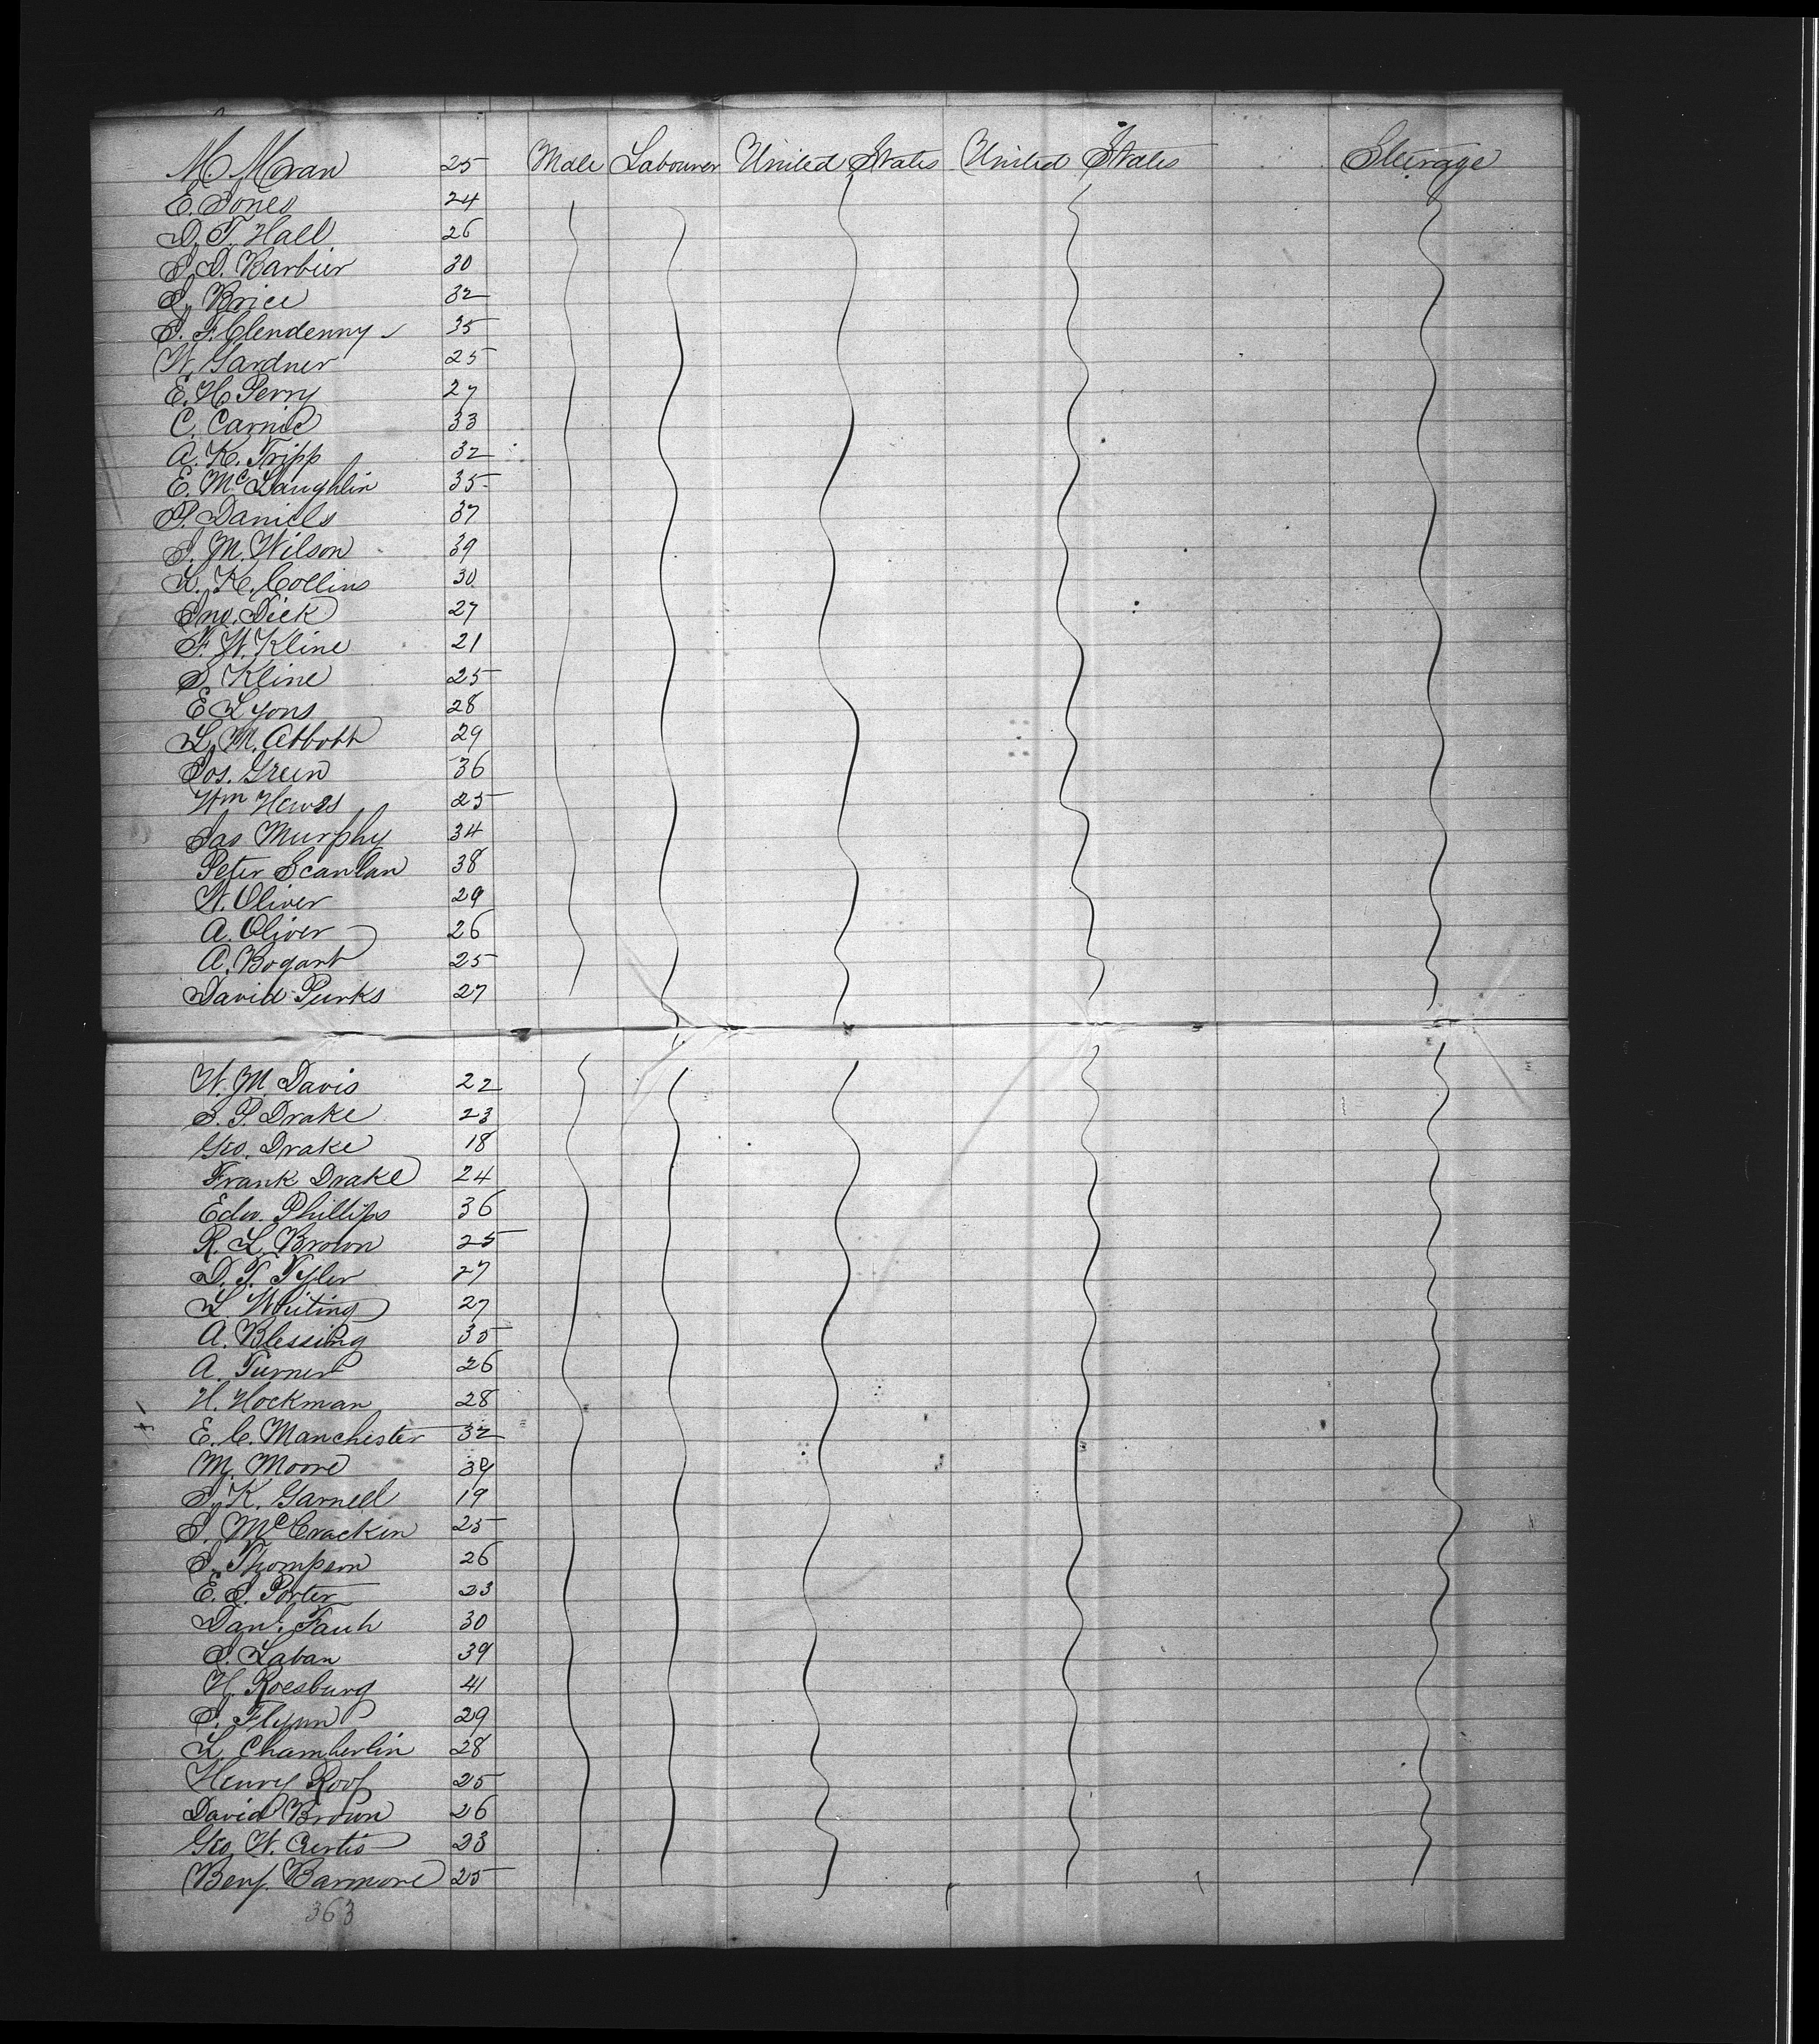 M Moran 25 Male Labourer United States United States Steerage
E. Jones 24
D. T. Hall 26
J. D. Barbier 30
J. Brice 32
J. F. Clendenny 35
W. Gardner 25
E. H. Perry 27
C. Carnie 33
A. K. Tripp 32
E. McLaughlin 35
P. Daniels 37
J. M. Wilson 39
L. K. Collins 30
Jno. Dick 27
F. W. Kline 21
S. Kline 25
E Lyons 28
L. M. Abbott 29
Jos. Green 36
Wm Hawes 25
Jas Murphy 34
Peter Scanlan 38
W. Oliver 29
A. Oliver 26
A. Bogart 25
David Purks 27
W. M. Davis 22
S. P. Drake 23
Geo. Drake 18
Frank Drake 24
Edw. Phillips 36
R. L. Brown 25
D. T. Tyler 27
L. Whiting 27
A. Blessing 35
A. Turner 26
H. Hockman 28
E. C. Manchester 32
M. Moore 39
J. K. Garnell 19
J. McCrackin 25
J. Thompson 26
E. J. Porter 23
Danl. Fauh 30
J. Laban 39
H. Roesburg 41
J. Flynn 29
L. Chamberlin 28
Henry Roof 25
David Brown 26
Geo. W. Curtis 23
Benj. Barmore 25
363